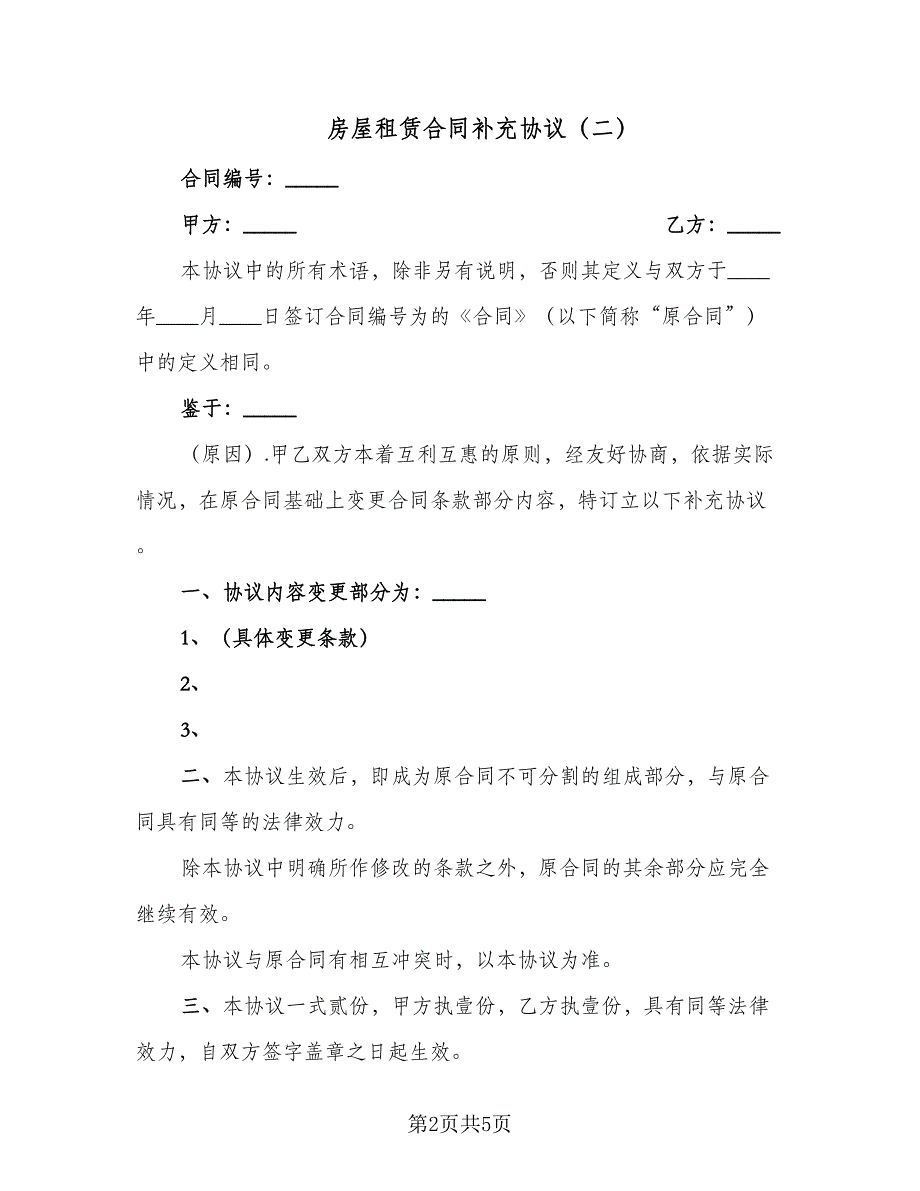 房屋租赁合同补充协议（二）
合同编号：_____
甲方：_____ 乙方：_____
本协议中的所有术语，除非另有说明，否则其定义与双方于____
年____月____日签订合同编号为的《合同》（以下简称“原合同”）
中的定义相同。
鉴于：_____
（原因）.甲乙双方本着互利互惠的原则，经友好协商，依据实际
情况，在原合同基础上变更合同条款部分内容，特订立以下补充协议
。
一、协议内容变更部分为：_____
1、（具体变更条款）
2、
3、
二、本协议生效后，即成为原合同不可分割的组成部分，与原合
同具有同等的法律效力。
除本协议中明确所作修改的条款之外，原合同的其余部分应完全
继续有效。
本协议与原合同有相互冲突时，以本协议为准。
三、本协议一式贰份，甲方执壹份，乙方执壹份，具有同等法律
效力，自双方签字盖章之日起生效。
第2页共5页